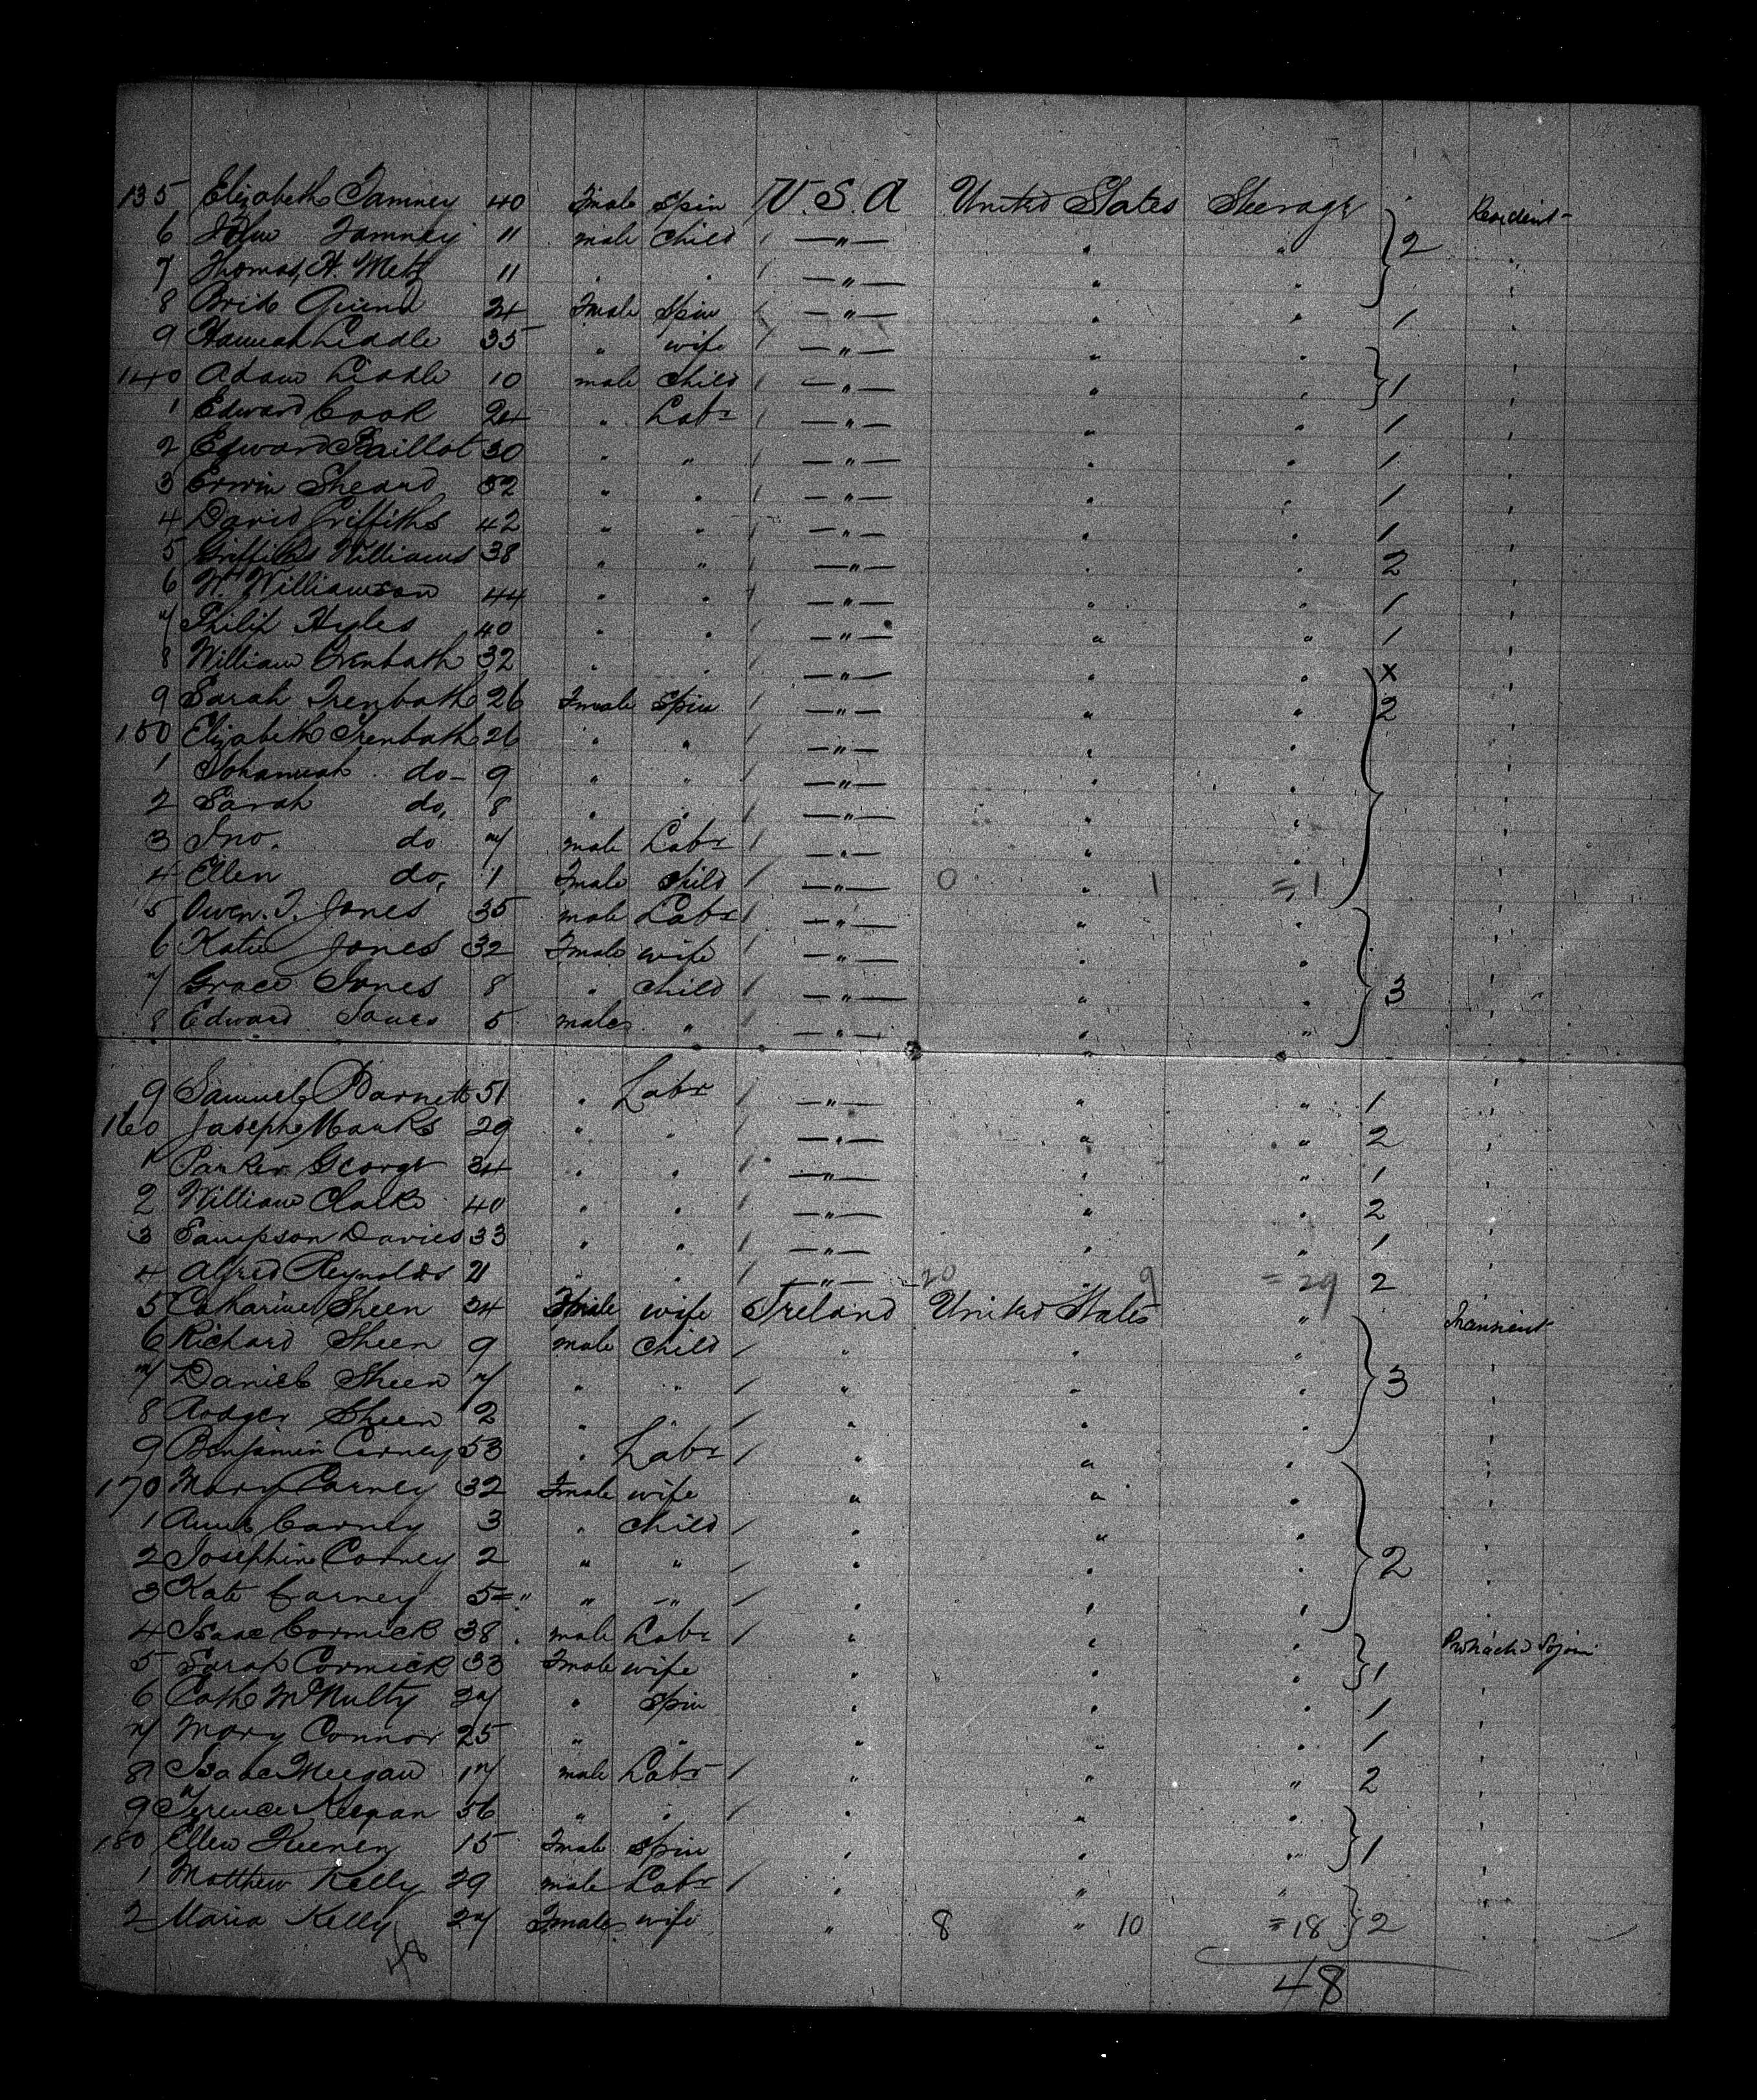 135 Elizabeth Tamney 40 Fmale Spin U.S.A United States Steerage Resident
6 John Tamney 11 male Child / — " — " " 2 "
7 Thomas H. Metz 11 " " / — " — " " "
8 24 Fmale Spin / — " — " " 1 "
9 Hannah Liddle 35 " wife / — " — " " "
140 Adam Liddle 10 male Child / — " — " " 1 "
1 Edward Cook 24 " Labr / — " — " " 1 "
2 Edward Baillot 30 " " / — " — " " 1 "
3 Erwin Sheard 32 " " / — " — " " 1 "
4 David Griffiths 42 " " / — " — " " 1 "
5 Griffiths Williams 38 " " / — " — " " 2 "
6 Wm Williamson 44 " " / — " — " " 1 "
7 Philip Hyles 40 " " / — " — " " 1 "
8 William Trenbath 32 " " / — " — " " x "
9 Sarah Trenbath 26 Fmale Spin / — " — " " 2 "
150 Elizabeth Trenbath 26 " " / — " — " " "
1 Johannah do 9 " " / — " — " " "
2 Sarah do, 8 " " / — " — " " "
3 Jno. do 7 male Labr / — " — " " "
4 Ellen do, 1 Fmale Child / — " — 0 " 1 = 1 "
5 Owen. T. Jones 35 male Labr / — " — " " "
6 Katie Jones 32 Fmale wife / — " — " " "
7 Grace Jones 8 " Child / — " — " " 3 "
8 Edward Jones 5 male " / — " — " " "
9 Samuel Barnett 51 " Labr / — " — " " 1 "
160 Joseph Marks 29 " " / — " — " " 2 "
1 Parker George 34 " " / — " — " " 1 "
2 William Clark 40 " " / — " — " " 2 "
3 Sampson Davies 33 " " / — " — " " 1 "
4 Alfred Reynolds 21 " " / — " — 20 " 9 = 29 2 "
5 Catharine Sheen 34 Fmale wife Ireland United States " Transient
6 Richard Sheen 9 male Child / " " " "
7 Daniel Sheen 7 " " / " " " 3 "
8 Rodger Sheen 2 " " / " " " "
9 Benjamin Carney 53 " Labr / " " " "
170 Mary Carney 32 Fmale wife " " " "
1 Annie Carney 3 " Child / " " " "
2 Josephine Carney 2 " " / " " " 2 "
3 Kate Carney 5 " " " / " " " "
4 Isaac Cormick 38 male Labr / " " "
5 Sarah Cormick 33 Fmale wife " " " 1 "
6 Cath McNulty 27 " Spin " " " 1 "
7 Mary Connor 25 " " " " " 1 "
8 Meegan 17 male Labr / " " " 2 "
9 Terence Keegan 56 " " / " " " "
180 Ellen Keeney 15 Fmale Spin " " " 1 "
1 Matthew Kelly 29 male Labr / " " " "
2 Maria Kelly 27 Fmale wife " 8 " 10 = 18 2 "
48